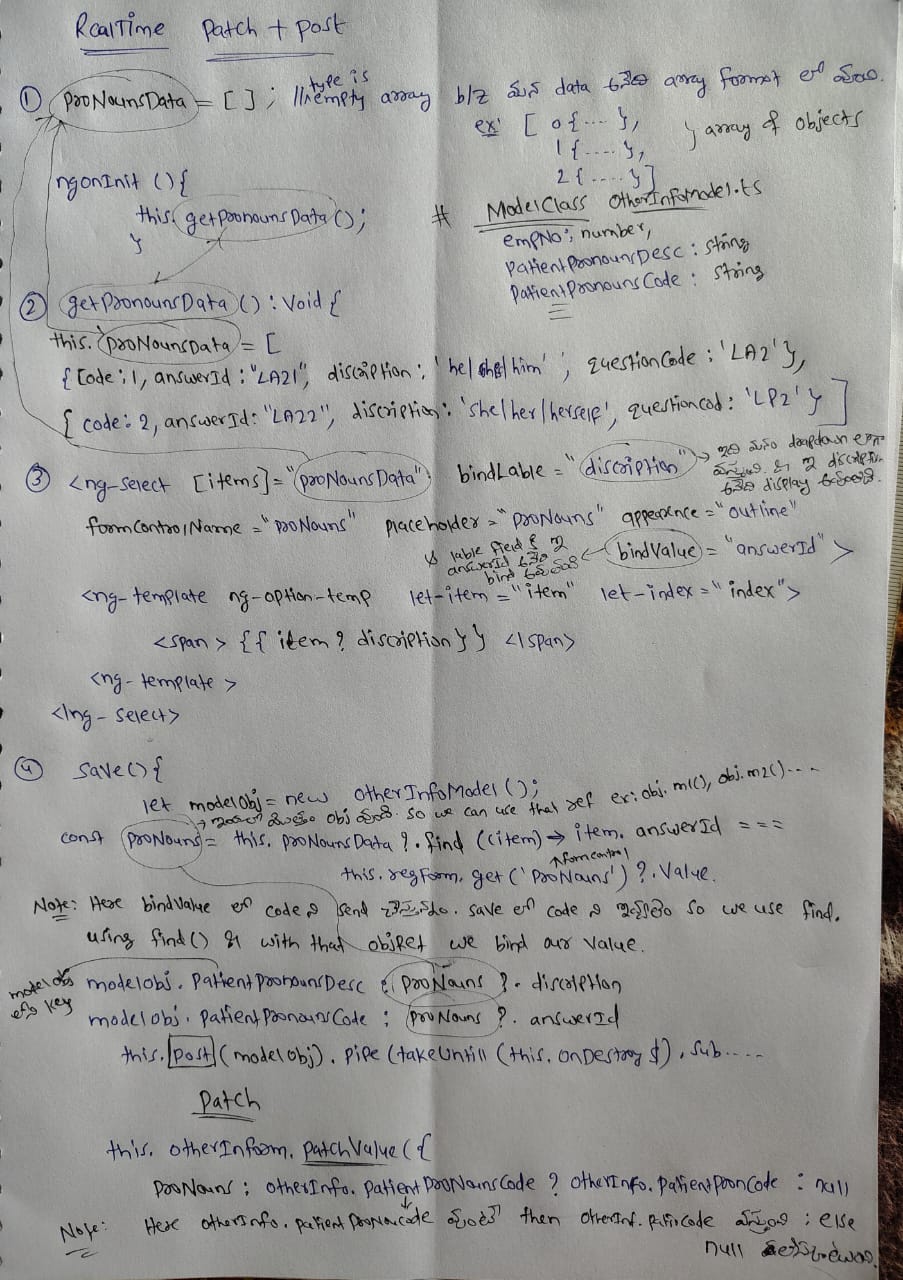 RealTime Patch + Post
① proNounsData = [ ] ; // type is empty array b/z మన data అనేది array format లో వుంది.
ex: [ 0{---- },
1 {----- },
2 { ----- } ] } array of objects
ngonInit () {
this. getpronounsData ();
}
# ModelClass OtherInfoModel.ts
empNo : number,
PatientPronounsDesc : string
PatientPronounsCode : string
② getPronounsData () : Void {
this. proNounsData = [
{ Code : 1, answerId : "LA21", discription : 'he/she/him' ; questionCode : 'LA2' },
{ code : 2, answerId : "LA22", discription : 'she/her/herself', questioncod : 'LP2' } ]
③ <ng-select [items] = "proNounsData" bindLable = "discription" → ఇది మనం dropdown
discription
అనేది display అవుతుంది.
formControlName = "proNouns" placeholder = "proNouns" appearence = "outline"
lable field కి ఇ
answerId అనేది
bind అవుతుంది ← bindValue = "answerId" >
<ng-template ng-option-temp let-item = "item" let-index = "index">
<span> {{ item ? discription }} </span>
<ng-template >
</ng-select>
④ save() {
let modelObj = new otherInfoModel ();
obj so we can use that ref ex: obj.m1(), obj.m2() - - -
const proNouns = this. proNounsData ?. find ((item) → item. answerId ===
this. regForm. get ('proNouns') ?. Value.
formcontrol
Note: Here bindvalue లో code ని send చేస్తున్నాం. save లో code ని ఇస్తాం so we use find.
using find() with that object we bind our value.
model obj
key
modelobj. PatientpronounsDesc : proNouns ?. discription
modelobj. PatientPronounsCode : proNouns ?. answerId
this. Post (modelobj). pipe (takeUntill (this. onDestroy $), sub....
Patch
this. otherInform. patchValue ({
proNouns : otherInfo. PatientproNounsCode ? otherInfo. PatientpronCode : null
Note: Here otherInfo. patient pronouncode వుంటే then otherInf. వస్తుంది ; else
null